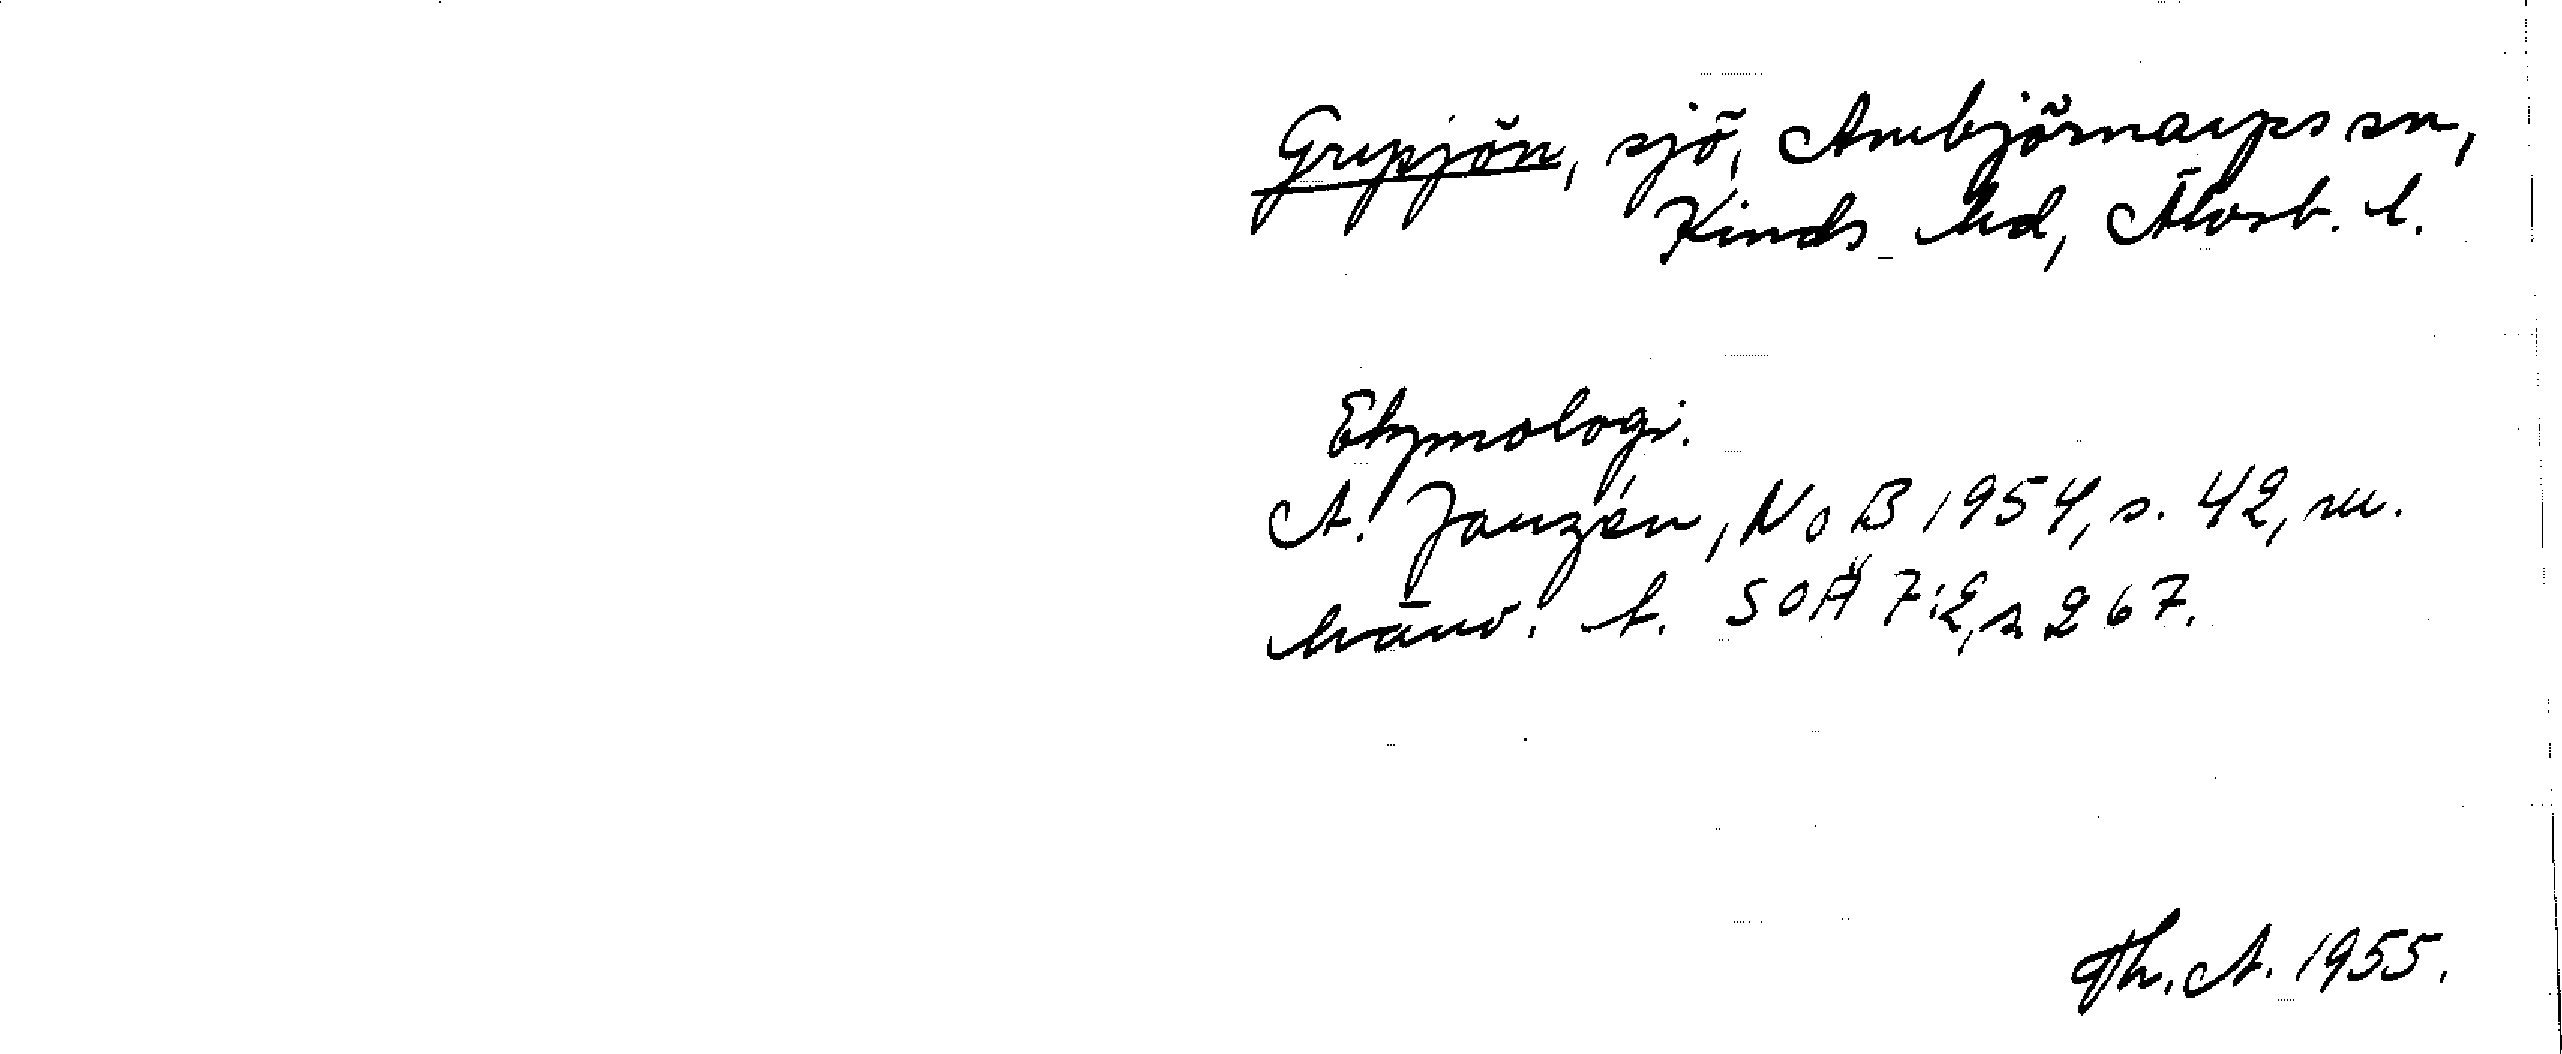 Grypjön, sjö, Ambjörnarps sn,
Kinds hd, Älvsb. l.
Etymologi.
A. Janzén, NoB 1954, s. 42, m.
hänv. t. SOÄ 7:2, s 267.
Th. A. 1955.